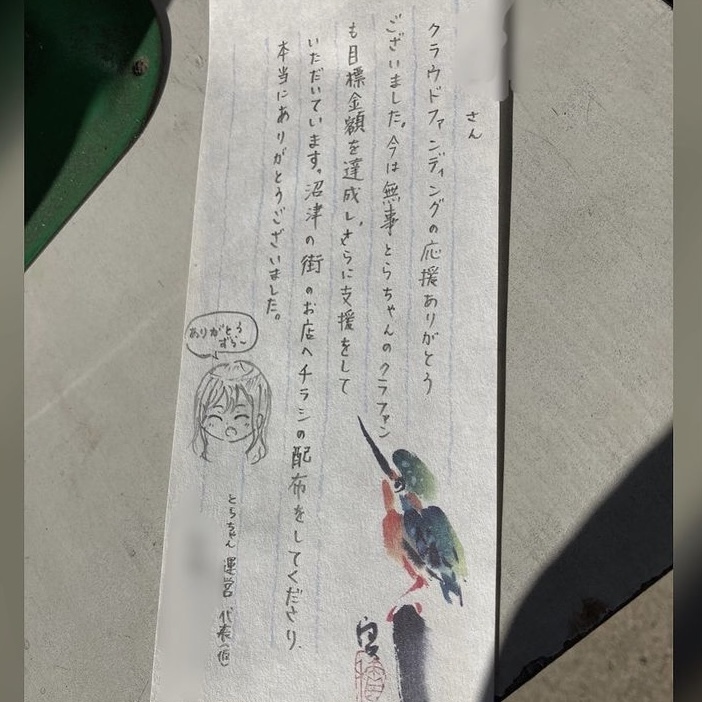 さん
クラウドファンディングの応援ありがとう
ございました。今は無事とらちゃんのクラファン
も目標金額を達成し、さらに支援をして
いただいています。沼津の街のお店へチラシの配布をしてくださり、
本当にありがとうございました。
ありがとう
ずら〜
とらちゃん 運営 代表(仮)